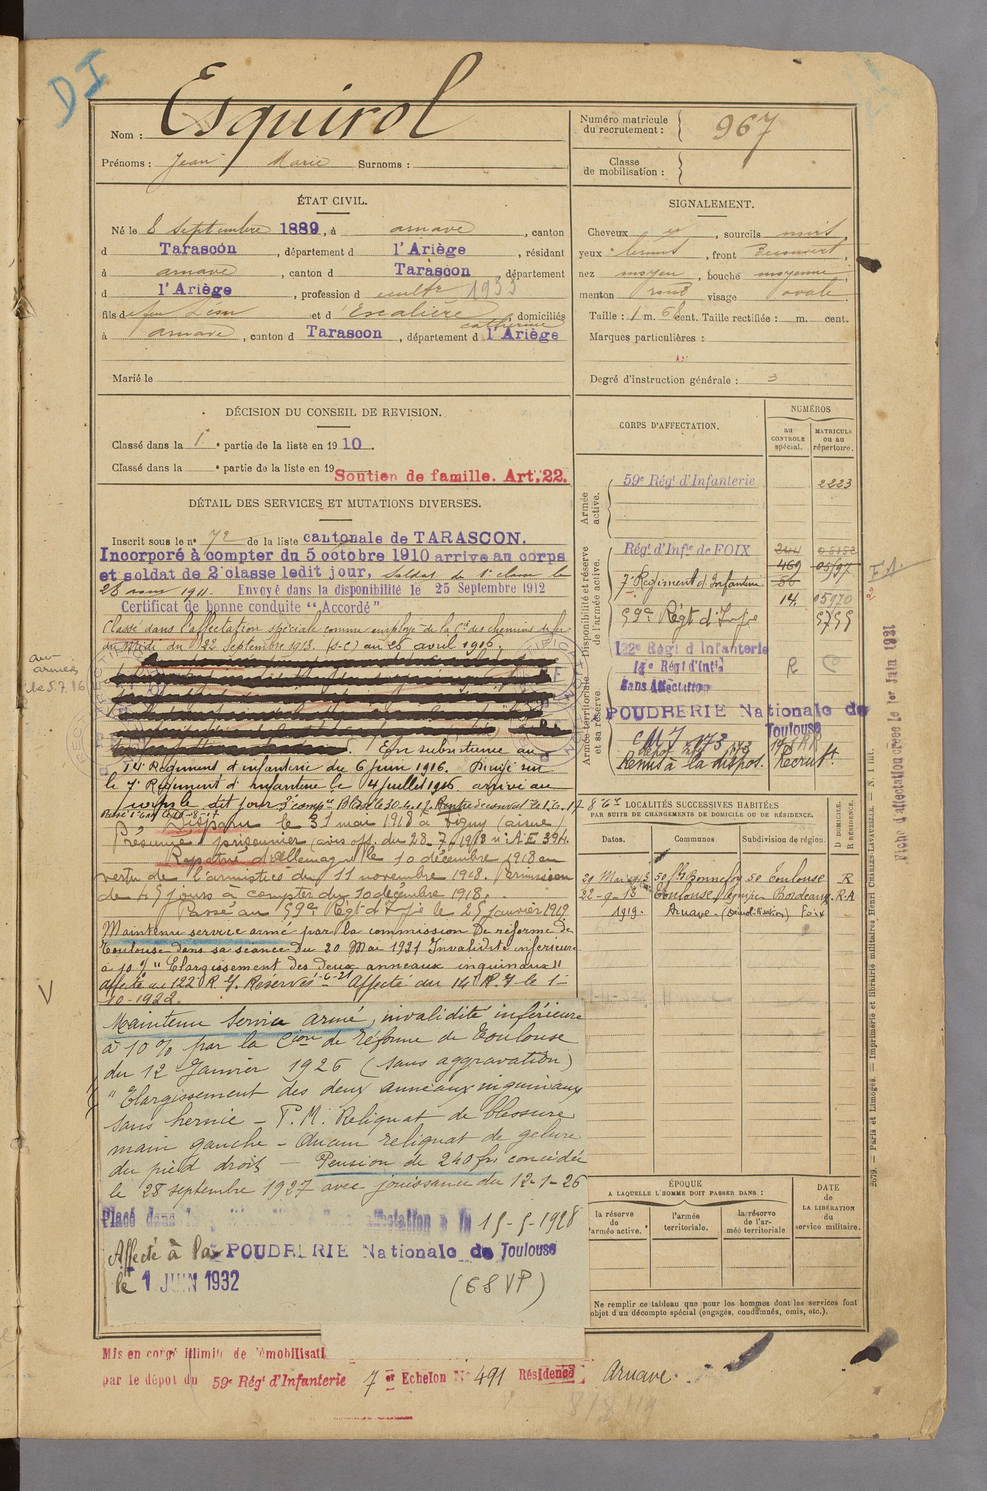 DI
Nom : Esquirol
Prénoms : Jean Marie Surnoms :
Numéro matricule du recrutement : 967
Classe de mobilisation :
ÉTAT CIVIL.
Né le 8 septembre 1889, à arnave, canton
d Tarascon, département d l'Ariège, résidant
à arnave, canton d Tarascon, département
d l'Ariège, profession d cultr 1933
fils de feu Léon et d' Escalière catherine, domiciliés
à arnave, canton d Tarascon, département d l'Ariège
Marié le
SIGNALEMENT.
Cheveux , sourcils noirs,
yeux bruns, front Découvert,
nez moyen, bouche moyenne
menton rond visage ovale
Taille : 1 m. 6 cent. Taille rectifiée : m. cent.
Marques particulières :
Degré d'instruction générale : 3
DÉCISION DU CONSEIL DE REVISION.
Classé dans la 1e partie de la liste en 1910.
Classé dans la e partie de la liste en 19
Soutien de famille. Art. 22.
DÉTAIL DES SERVICES ET MUTATIONS DIVERSES.
Inscrit sous le no 72 de la liste cantonale de TARASCON.
Incorporé à compter du 5 octobre 1910 arrive au corps
et soldat de 2e classe ledit jour, Soldat de 1e classe le
1911. Envoyé dans la disponibilité le 25 Septembre 1912
Certificat de bonne conduite "Accordé"
Classé dans l'affectation spéciale comme employé de la Cie des chemins de fer
du Midi du 22 Septembre 1913. (S-C) au 26 avril 1916.
aux armées le 5.7.16
Est substance au
14e Régiment d'infanterie du 6 Juin 1916. Dirigé sur
le 7e Régiment d'infanterie le 4 juillet 1916 arrivé au
corps le dit jour 3e compie Blessé le 30.4.17.
Disparu le 31 mai 1918 à (aisne)
Présumé prisonnier (avis off. du 28-7-1918 no AE 394.
Rapatrié d'Allemagne le 10 décembre 1918 en
vertu de l'armistice du 11 novembre 1918. Permission
de 45 jours à compter du 10 décembre 1918.
Passé au 59e Régt d'Ie le 25 Janvier 1919
Maintenu service armé par la commission de réforme de
Toulouse dans sa séance du 20 Mai 1921 Invalidité inférieure
à 10% "Elargissement des deux anneaux inguinaux"
affecté au 122 R.I. Réserves Affecté au 14e R.I le 1-
10-1922.
V
Maintenu Service armé, invalidité inférieure
à 10% par la Cion de Réforme de Toulouse
du 12 Janvier 1926 (sans aggravation)
"Elargissement des deux anneaux inguinaux
sans hernie - P.M. Reliquat de blessure
main gauche - Aucun reliquat de gelure
du pied droit - Pension de 240 frs concédée
le 28 septembre 1927 avec jouissance du 12-1-26
Placé dans 15-5-1928
Affecté à la POUDRERIE Nationale de Toulouse
le 1 JUIN 1932 (68 VP)
Mis en congé illimité de démobilisati
par le dépôt du 59e Régt d'Infanterie 7e Echelon No 491 Résidence Arnave
CORPS D'AFFECTATION.
NUMÉROS
au CONTROLE spécial.
MATRICULE ou au répertoire.
Armée active.
59e Régt d'Infanterie 2223
Disponibilité et réserve de l'armée active.
Régt d'Infie de FOIX 244
469
7e Régiment d'Infanterie 56
14. 05970
59e Régt d'Ie 5755
Armée territoriale et sa réserve.
122e Régt d'Infanterie
14e Régt d'Inft
Sans Affectation
POUDRERIE Nationale de Toulouse
CMI 173
Remis à la dispos. Recrutt.
Fiche d'affectation créée le 1er Juin 1931
LOCALITÉS SUCCESSIVES HABITÉES
PAR SUITE DE CHANGEMENTS DE DOMICILE OU DE RÉSIDENCE.
Dates. Communes Subdivision de région. D DOMICILE. R RÉSIDENCE.
20 Mai 1913 50 Bonnefoy 50 Toulouse R
22-9-13 Toulouse, équipe Bordeaux R.A
1919. Arnave (Démobilisation) Foix
ÉPOQUE
A LAQUELLE L'HOMME DOIT PASSER DANS :
la réserve de l'armée active.
l'armée territoriale.
la réserve de l'armée territoriale.
DATE de LA LIBÉRATION du service militaire.
Ne remplir ce tableau que pour les hommes dont les services font
objet d'un décompte spécial (engagés, condamnés, omis, etc.).
2679. — Paris et Limoges. — Imprimerie et librairie militaires Henri CHARLES-LAVAUZELLE. — N. 1 int.